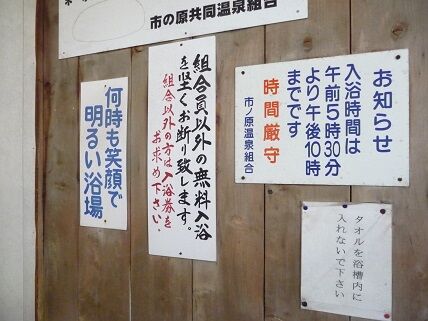 市の原共同温泉組合
お知らせ
入浴時間は
午前5時30分
より午後10時
までです
時間厳守
市ノ原温泉組合
組合員以外の無料入浴
を堅くお断り致します。
組合以外の方は入浴券を
お求め下さい.
何時も笑顔で
明るい浴場
タオルを浴槽内に
入れないで下さい